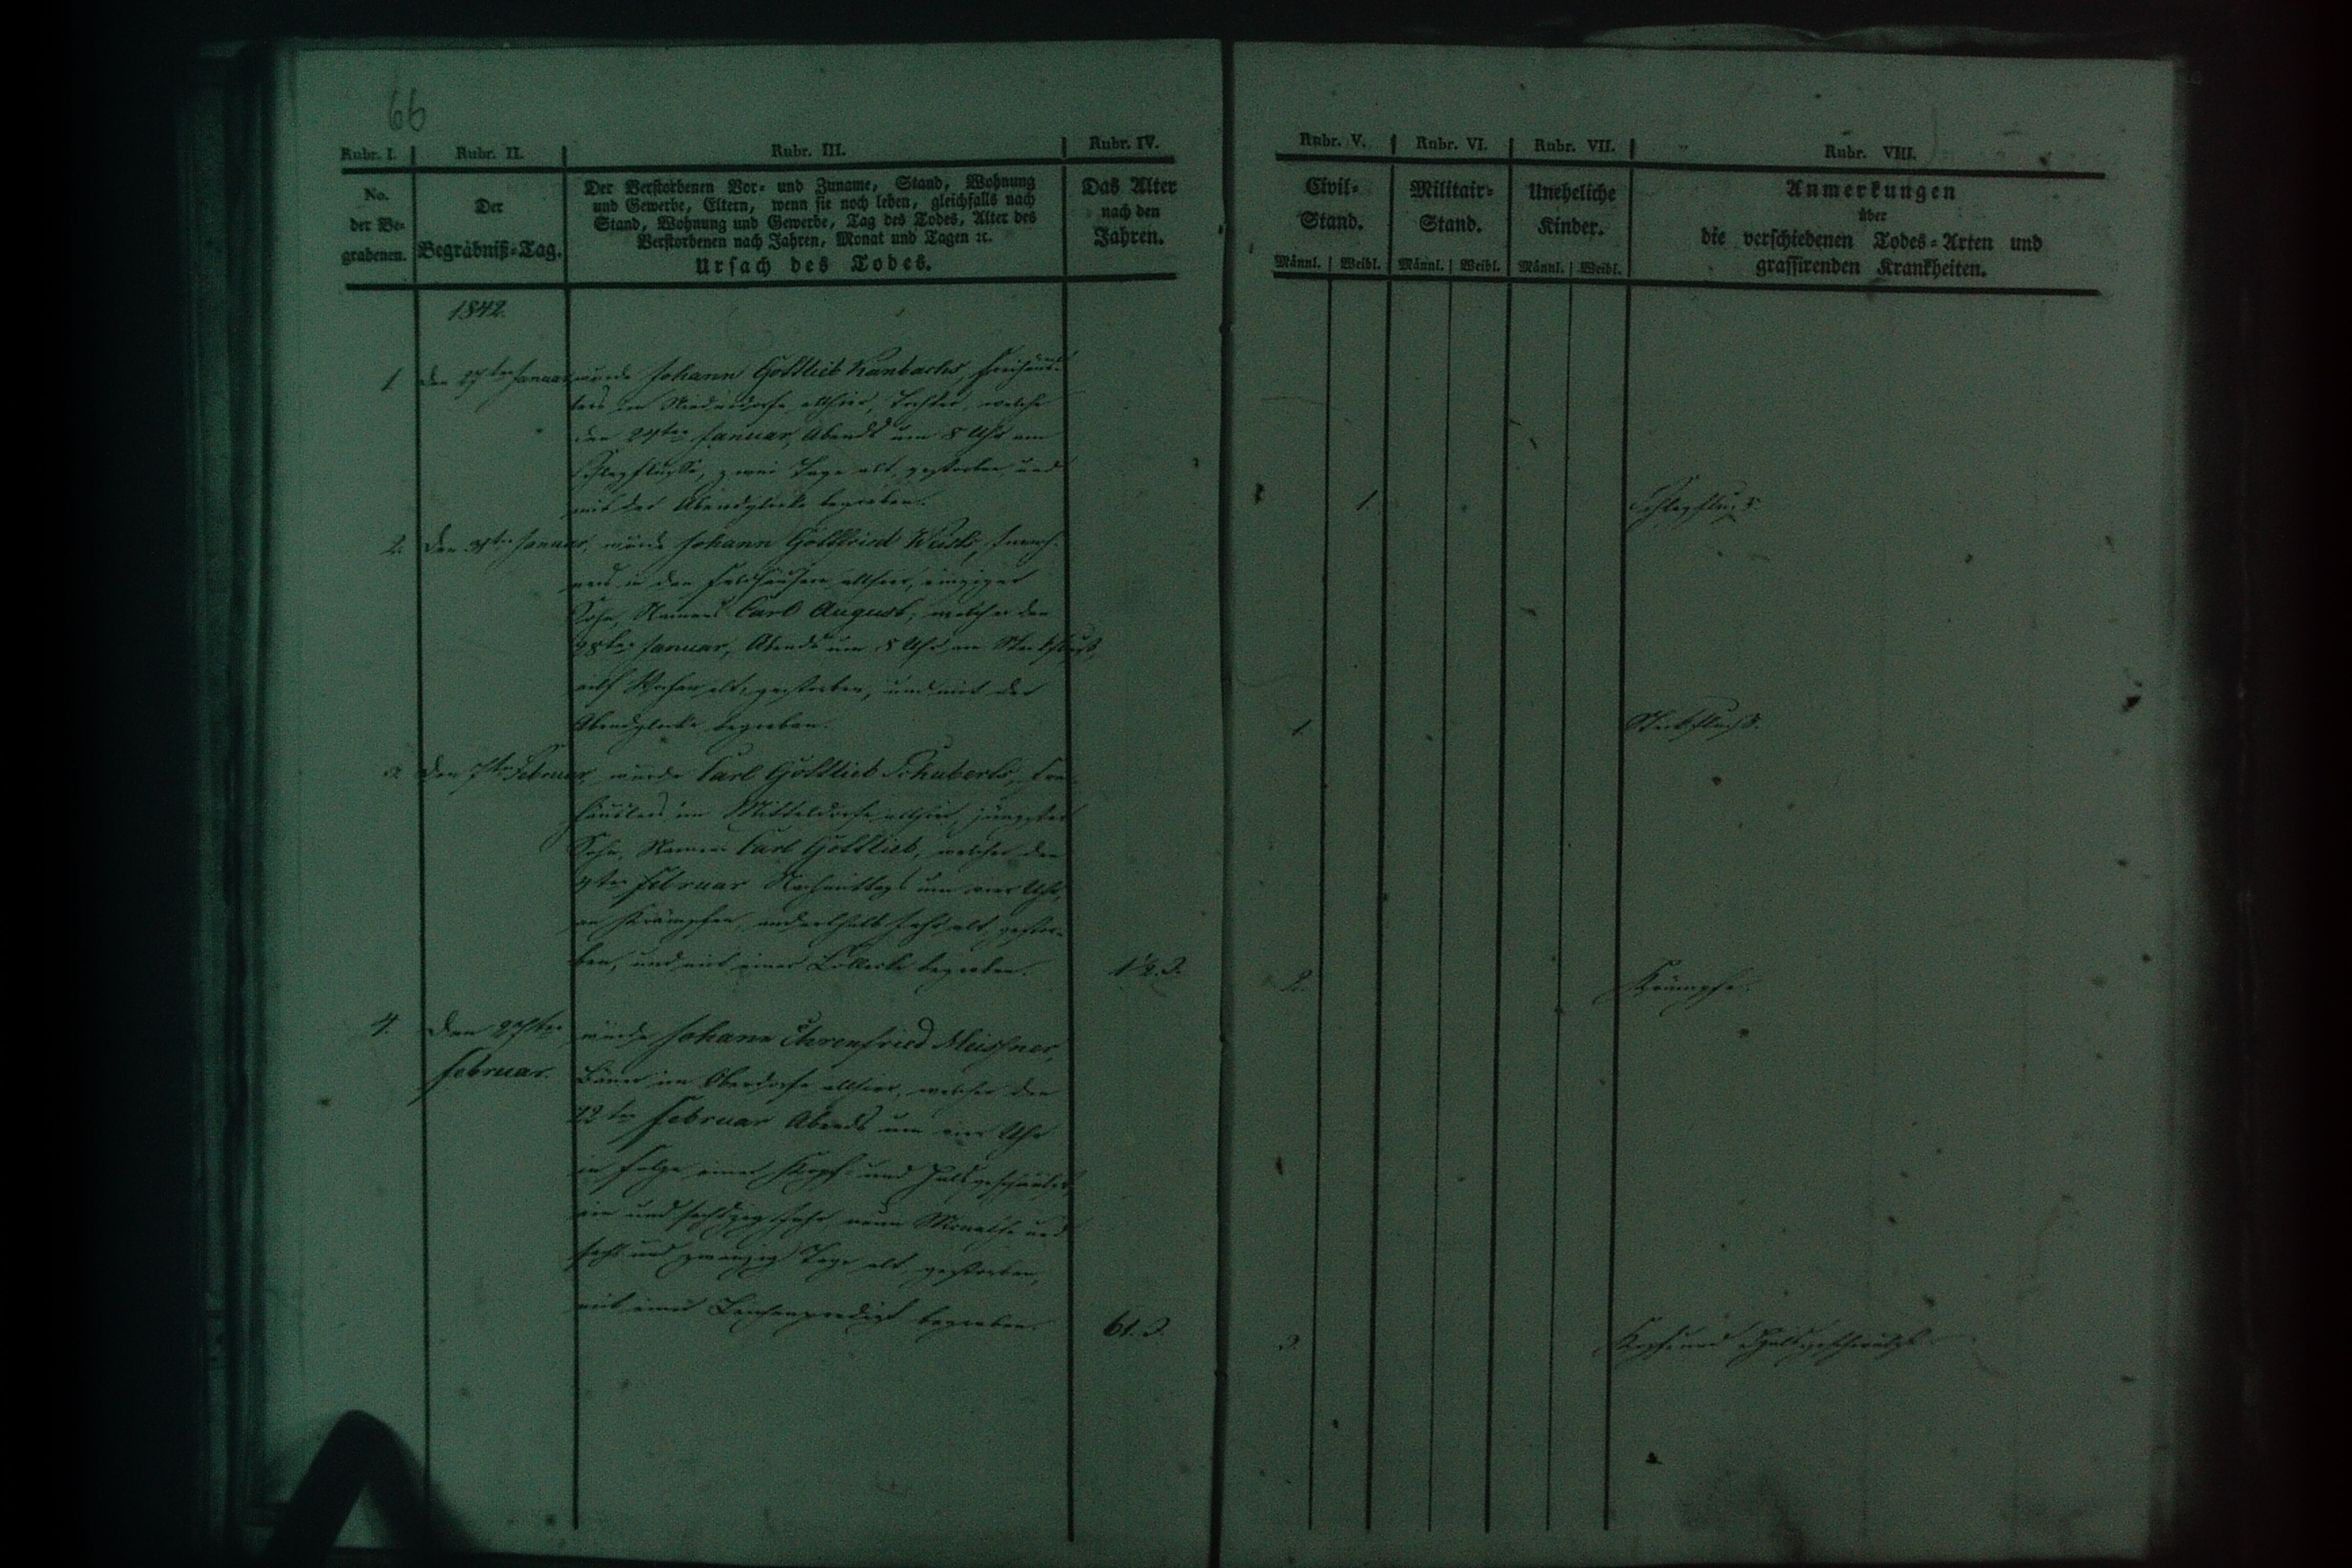 66
Rubr. I. Rubr. II. Rubr. III. Rubr. IV. Rubr. V. Rubr. VI. Rubr. VII. Rubr. VIII.
No.
der Be-
grabenen.
Der
Begräbniß-Tag.
Der Verstorbenen Vor- und Zuname, Stand, Wohnung
und Gewerbe, Eltern, wenn sie noch leben, gleichfalls nach
Stand, Wohnung und Gewerbe, Tag des Todes, Alter des
Verstorbenen nach Jahren, Monat und Tagen ꝛc.
Ursach des Todes.
Das Alter
nach den
Jahren.
Civil-
Stand.
Männl. Weibl.
Militair-
Stand.
Männl. Weibl.
Uneheliche
Kinder.
Männl. Weibl.
Anmerkungen
über
die verschiedenen Todes-Arten und
grassirenden Krankheiten.
1842.
1. Den 27ten Januar wurde Johann Gottlieb Kanbachs, Freihäus-
lers im Niederdorfe allhier, Tochter, welche
den 24ten Januar, Abends um 8 Uhr am
Schlagflusse, zwei Tage alt, gestorben und
mit der Abendglocke begraben. 1. Schlagfluß.
2. Den Januar, wurde Johann Gottfried
in den Feldhäusern allhier, einziger
Sohn, Namens Carl August, welcher den
28ten Januar, Abends um 8 Uhr am Stickfluß,
elf Wochen alt, gestorben, und mit der
Abendglocke begraben. 1. Stickfluß.
3. Den 7ten Februar, wurde Carl Gottlieb Schuberts, Frei-
häuslers im Mitteldorfe allhier, jüngster
Sohn, Namens Carl Gottlieb, welcher den
4ten Februar Nachmittags um vier Uhr,
an Krämpfen, anderthalb Jahr alt, gestor-
ben, und mit einer Collecte begraben. 1½ J. 2. Krämpfe.
4. Den 27ten wurde Johann Ehrenfried Meissner,
Februar. Bauer im Oberdorfe allhier, welcher den
22ten Februar Abends um vier Uhr
in Folge einer Kopf- und Halsgeschwulst,
ein und sechszig Jahr, neun Monathe und
sechs und zwanzig Tage alt gestorben,
mit einer Leichenpredigt begraben. 61. J. 3. Kopf- und Halsgeschwulst.